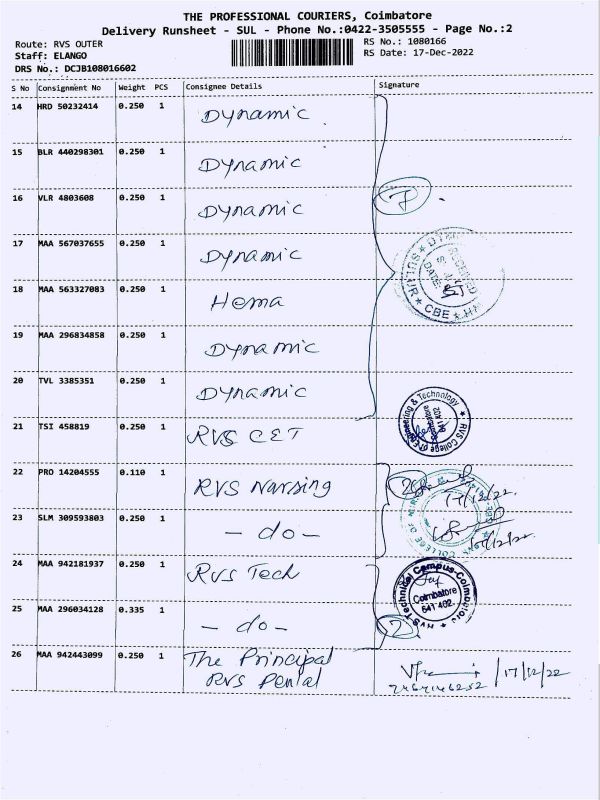 THE PROFESSIONAL COURIERS, Coimbatore
Delivery Runsheet - SUL - Phone No.:0422-3505555 - Page No.:2
Route: RVS OUTER
Staff: ELANGO
DRS No.: DCJB108016602
RS No.: 1080166
RS Date: 17-Dec-2022
S No Consignment No Weight PCS Consignee Details Signature
14 HRD 50232414 0.250 1 Dynamic
15 BLR 440298301 0.250 1 Dynamic
16 VLR 4803608 0.250 1 Dynamic 7
17 MAA 567037655 0.250 1 Dynamic
RECEIVED
DATE:
CBE
18 MAA 563327083 0.250 1 Hema
19 MAA 296834858 0.250 1 Dynamic
20 TVL 3385351 0.250 1 Dynamic
21 TSI 458819 0.250 1 RVS CET
RVS College of Engineering & Technology
Coimbatore
641 402
22 PRO 14204555 0.110 1 RVS Nursing 2
17/12/22
23 SLM 309593803 0.250 1 - do -
COLLEGE OF
24 MAA 942181937 0.250 1 RVS Tech
RVS Technical Campus-Coimbatore
Coimbatore
641 402
25 MAA 296034128 0.335 1 - do - 2
26 MAA 942443099 0.250 1 The Principal
RVS Dental
17/12/22